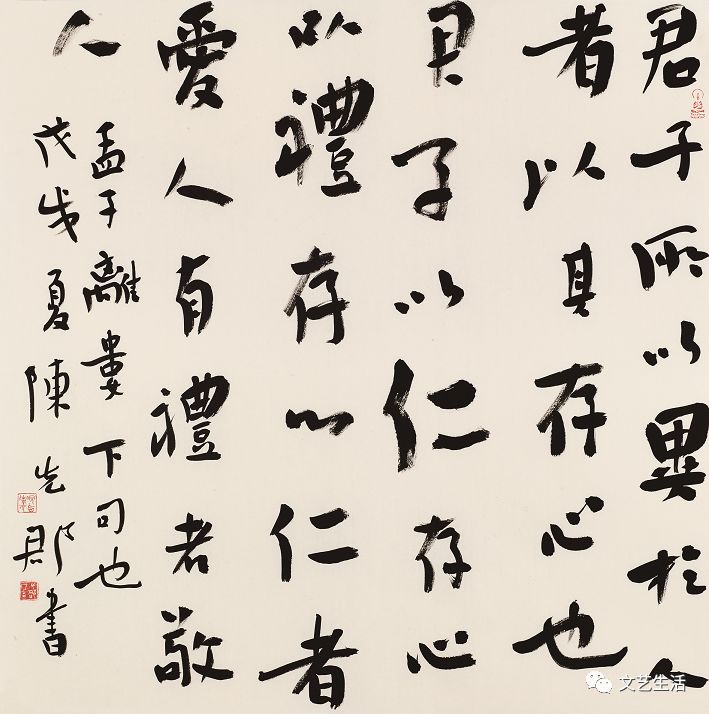 君子所以異於人
者以其存心也
君子以仁存心
以禮存心仁者
愛人有禮者敬
人
孟子離婁下句也
戊戌夏陳先郡書
文艺生活